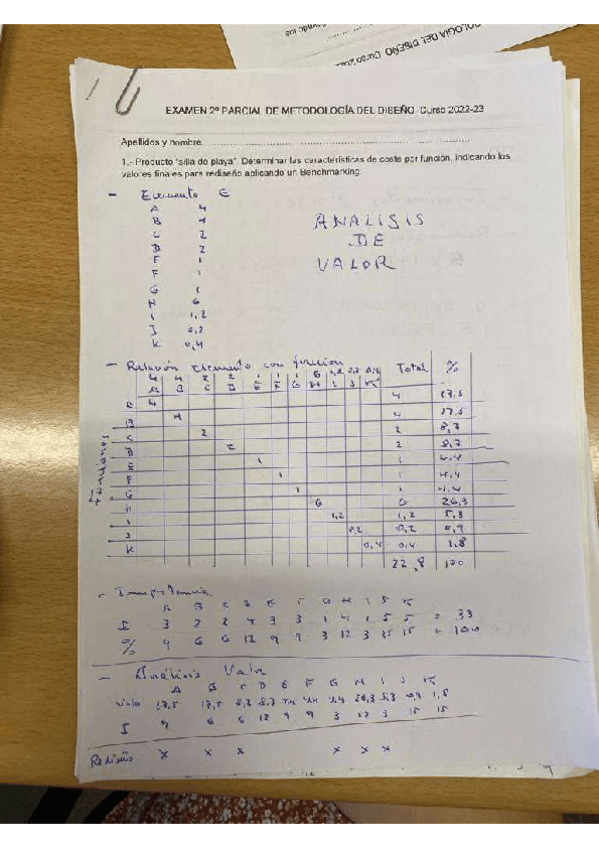 OLOGÍA DEL DISEÑO Curso 202
EXAMEN 2º PARCIAL DE METODOLOGÍA DEL DISEÑO. Curso 2022-23
Apellidos y nombre
1.- Producto "silla de playa". Determinar las características de coste por función, indicando los
valores finales para rediseño aplicando un Benchmarking.
- Elemento €
A 4
B 4
C 2
D 2
E 1
F 1
G 1
H 6
I 1,2
J 0,2
K 0,4
ANALISIS
DE
VALOR
- Relación elemento con función
4 4 2 2 1 1 1 6 1,2 0,2 0,4 Total %
A B C D E F G H I J K
Funciones
4 4 17,5
B 4 4 17,5
C 2 2 8,7
D 2 2 8,7
E 1 1 4,4
F 1 1 4,4
G 1 1 4,4
H 6 6 26,3
I 1,2 1,2 5,3
J 0,2 0,2 0,9
K 0,4 0,4 1,8
22,8 100
- Importancia
A B C D E F G H I J K
I 3 2 2 4 3 3 1 4 1 5 5 = 33
% 9 6 6 12 9 9 3 12 3 15 15 = 100
- Análisis Valor
A B C D E F G H I J K
17,5 17,5 8,7 8,7 4,4 4,4 4,4 26,3 5,3 0,9 1,8
I 9 6 6 12 9 9 3 12 3 15 15
Rediseño x x x x x x